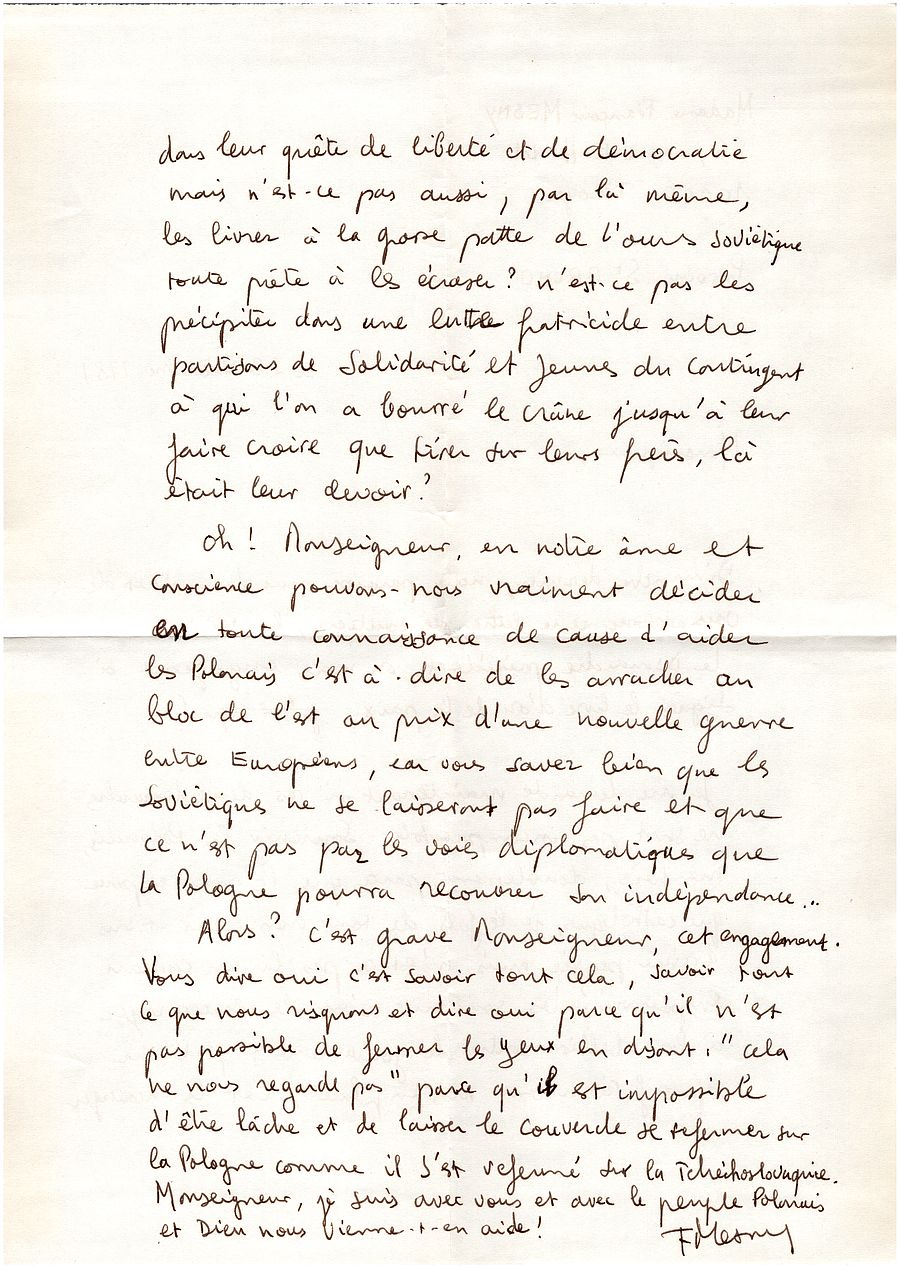 dans leur quête de liberté et de démocratie
mais n'est-ce pas aussi, par là même,
les livrer à la grosse patte de l'ours soviétique
toute prête à les écraser? n'est-ce pas les
précipiter dans une lutte fratricide entre
partisans de Solidarité et jeunes du contingent
à qui l'on a bourré le crâne jusqu'à leur
faire croire que tirer sur leurs frères, là
était leur devoir?
Oh! Monseigneur, en notre âme et
conscience pouvons-nous vraiment décider
en toute connaissance de cause d'aider
les Polonais c'est à-dire de les arracher au
bloc de l'est au prix d'une nouvelle guerre
entre Européens, car vous savez bien que les
Soviétiques ne se laisseront pas faire et que
ce n'est pas par les voies diplomatiques que
la Pologne pourra recouvrer son indépendance...
Alors? C'est grave Monseigneur, cet engagement.
Vous dire oui c'est savoir tout cela, savoir tout
ce que nous risquons et dire oui parce qu'il n'est
pas possible de fermer les yeux en disant: "cela
ne nous regarde pas" parce qu'il est impossible
d'être lâche et de laisser le couvercle se refermer sur
la Pologne comme il s'est refermé sur la Tchéchoslovaquie.
Monseigneur, je suis avec vous et avec le peuple Polonais
et Dieu nous vienne-t-en aide!
FMesny